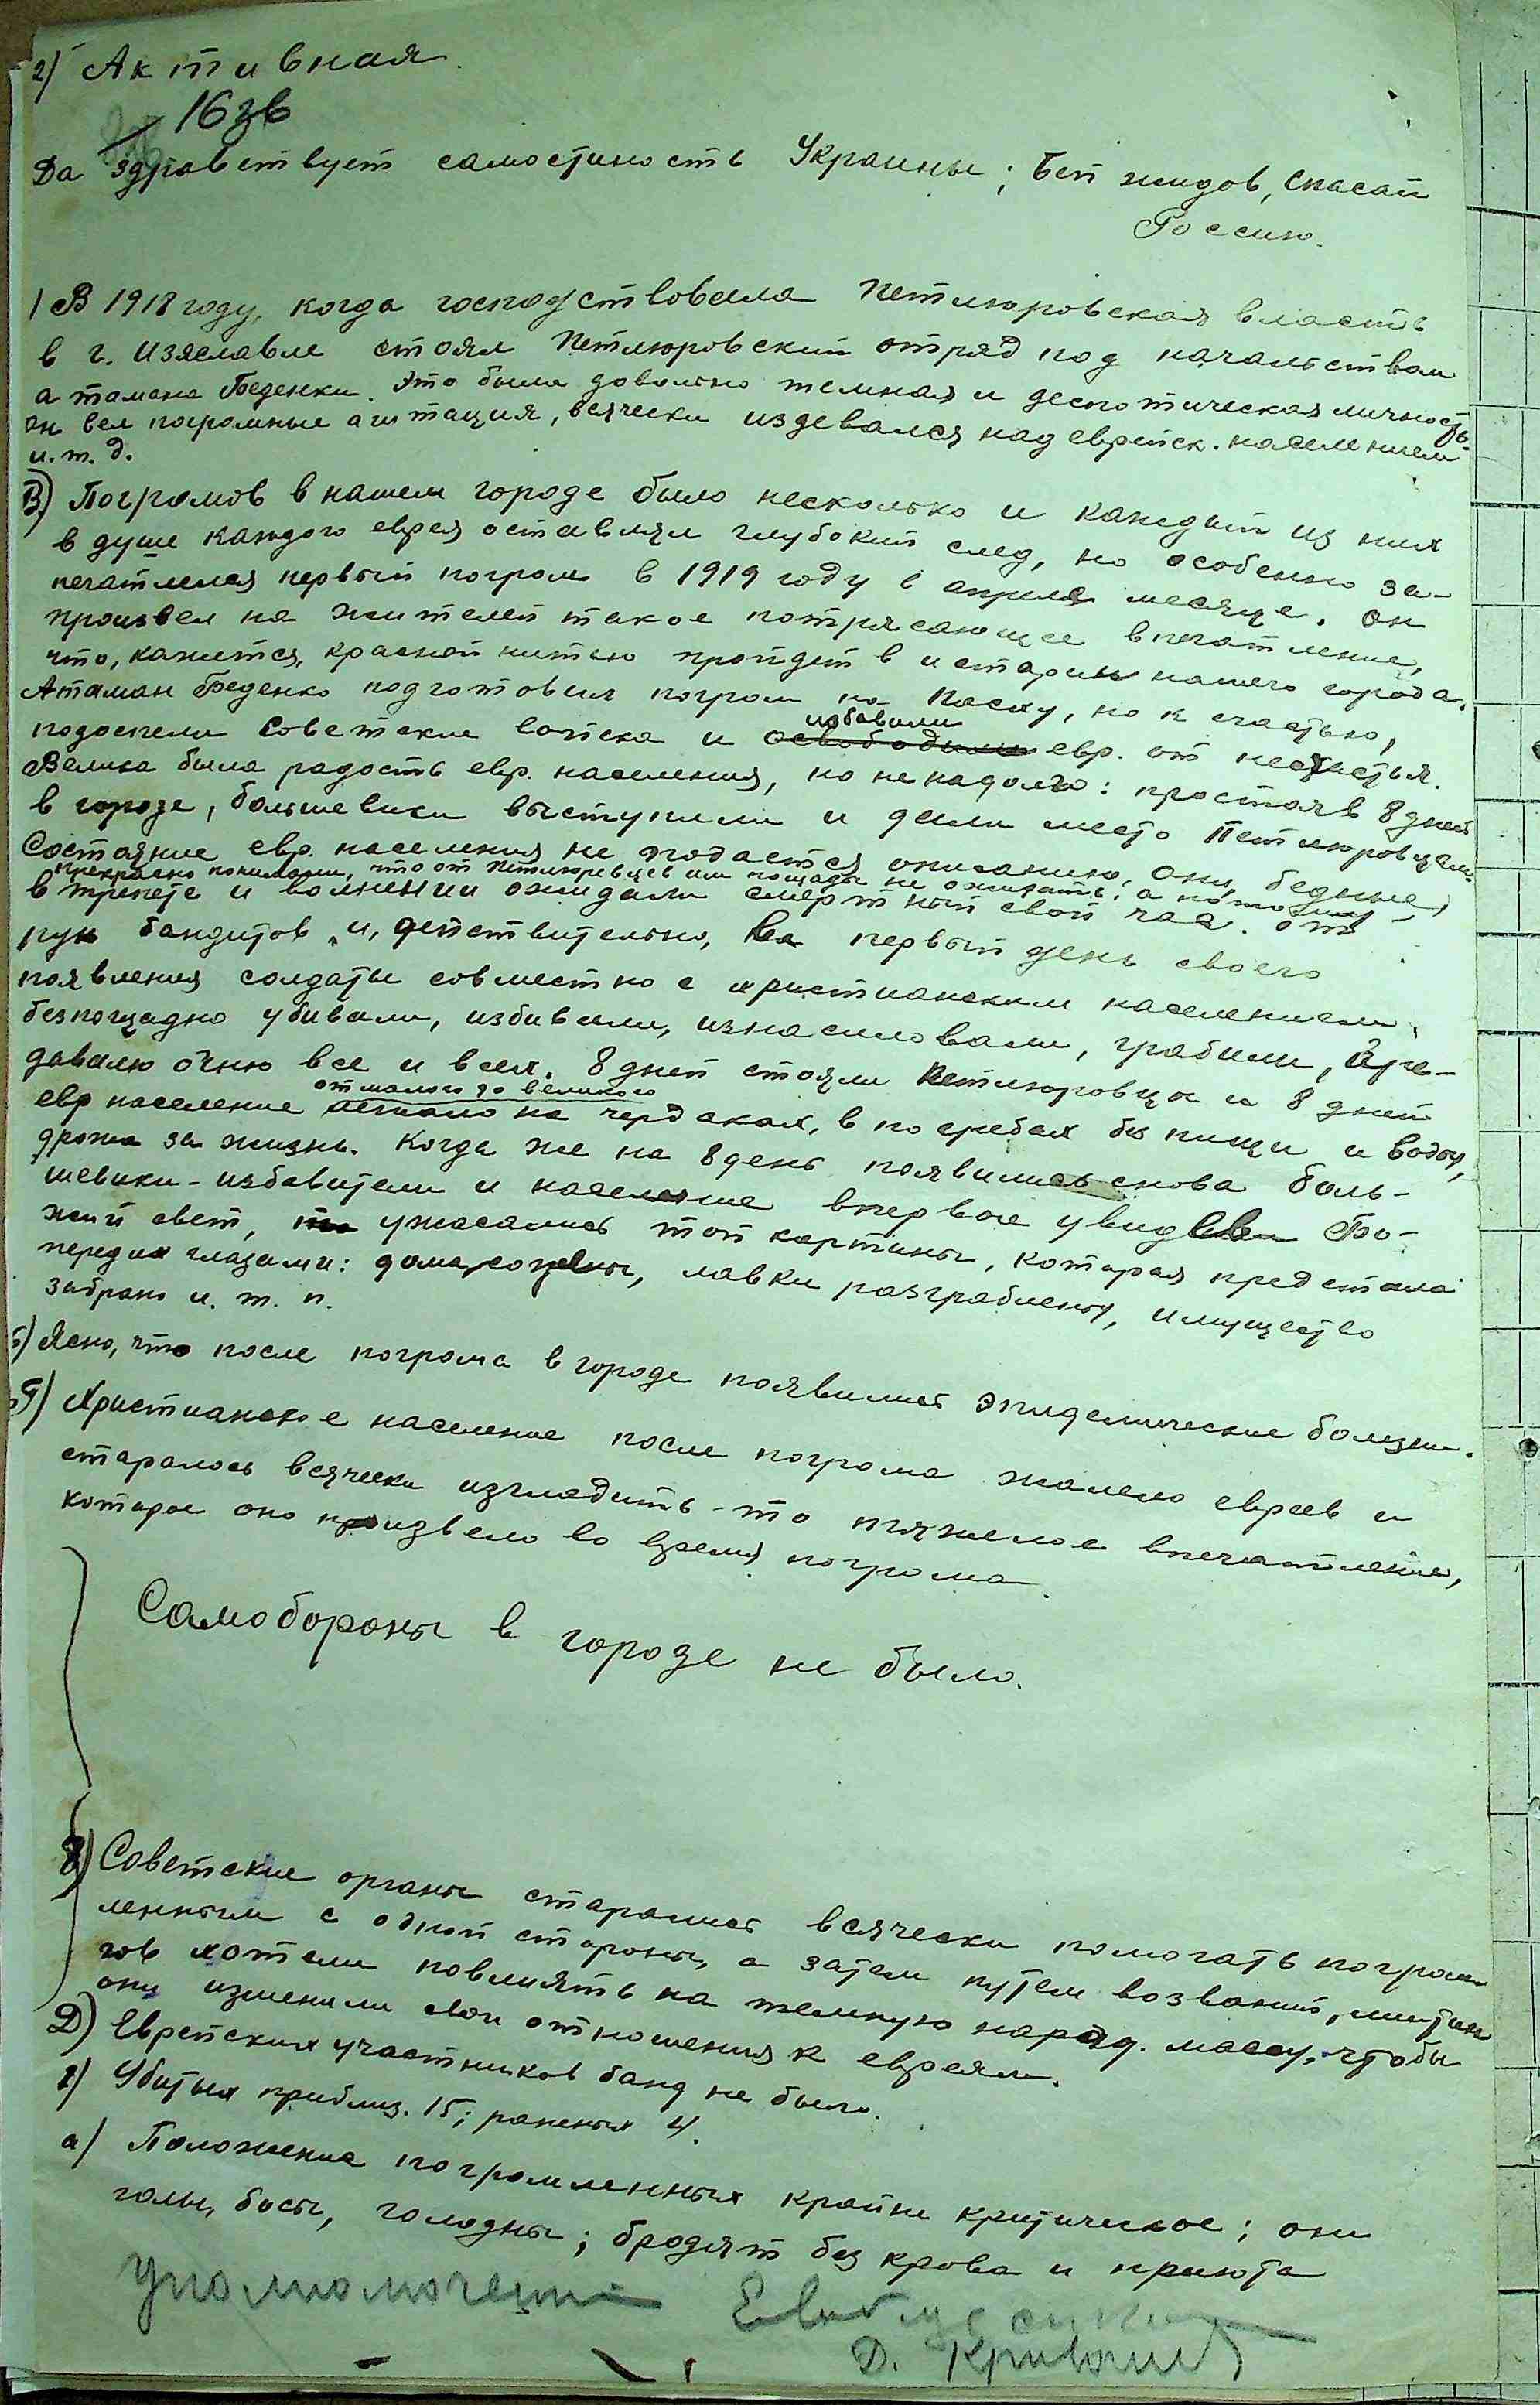 2) Активная
163в
Да здравствует самостиность Украины; Бей жидов, спасай
Россию.
1) В 1918 году, когда господствовала Петлюровская власть
в г. Изяславле стоял Петлюровский отряд под начальством
атамана Беденки. Это была довольно темная и деспотическая личность.
Он вел погромные агитация, всячески издевался над еврейск. населением
и. т. д.
В) Погромов в нашем городе было несколько и каждый из них
в душе каждого еврея оставлял глубокий след, но особенно за-
печатлелся первый погром в 1919 году в апреле месяце. Он
произвел на жителей такое потрясающее впечатление,
что, кажется, красной нитью пройдет в истории нашего города.
Атаман Беденко подготовил погром на Пасху, но к счастью,
подоспели Советские войска и избавили евр. от несчастья.
Велика была радость евр. населения, но не надолго: простояв 8 дней
в городе, большевики выступили и дали место Петлюровцам.
Состояние евр. населения не подается описанию. Они, бедные,
прекрасно понимали, что от Петлюревцев им пощады не ожидать, а потому
в трепете и волнении ожидали смертный свой час от
рук бандитов и, действительно, в первый день своего
появления солдаты совместно с христианским населением
безпощадно убивали, избивали, изнасиловали, грабили, пре-
давало огню все и всех. 8 дней стояли Петлюровцы и 8 дней
евр население от малого до великого лежало на чердаках, в погребах без пищи и воды,
дрожа за жизнь. Когда же на 8 день появились снова боль-
шевики - избавители и население впервые увидели Бо-
жий свет, ужасались той картины, которая предстала
перед их глазами: дома сожены, лавки разграблены, имущество
забрано и. т. п.
б) Ясно, что после погрома в городе появились эпидемические болезни.
Г) Христианское население после погрома жалело евреев и
старалось всячески изгладить то тяжелое впечатление,
которое оно произвело во время погрома.
Самобороны в городе не было.
Советские органы старались всячески помогать погром-
ленным с одной стороны, а затем путем воззваний, митин
гов хотели повлиять на темную народ. массу, чтобы
они изменили свои отношения к евреям.
Д) Еврейских участников банд не было.
Убитых приблиз. 15; раненых 4.
а) Положение погромленных крайне критическое; они
голы, босы, голодны; бродят без крова и приюта
Уполномоченный
Д.